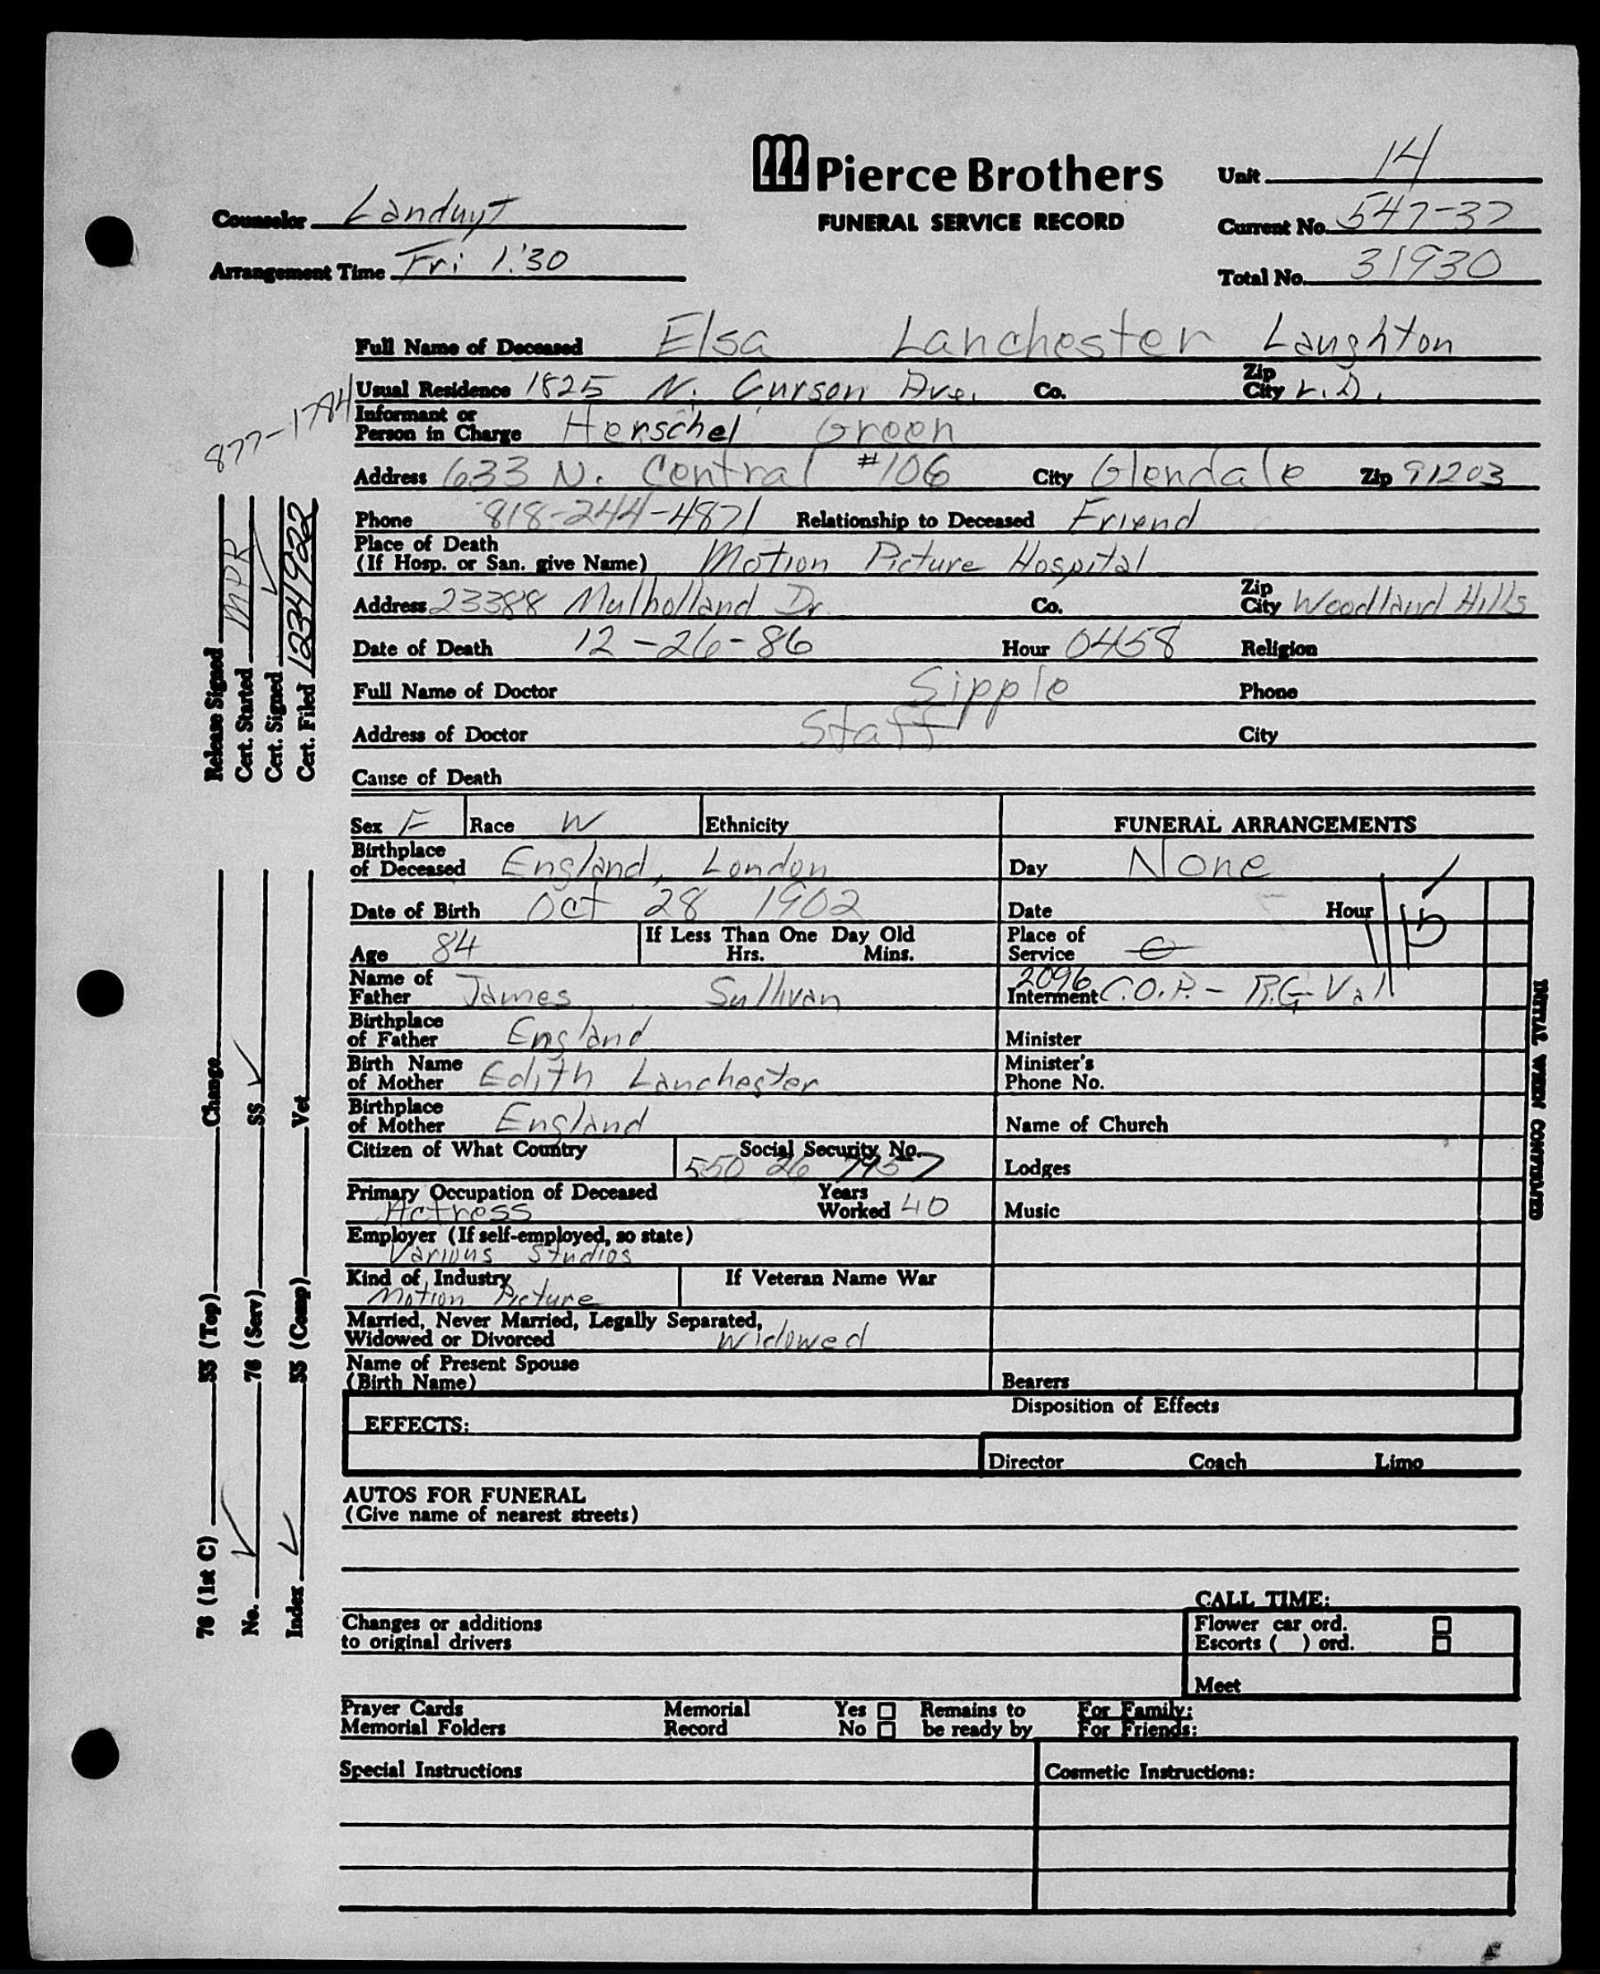 Pierce Brothers
FUNERAL SERVICE RECORD
Unit 14
Counselor Landuyt
Current No. 547-37
Arrangement Time Fri 1:30
Total No. 31930
Full Name of Deceased Elsa Lanchester Laughton
Usual Residence 1825 N. Curson Ave. Co. Zip City L.A.
877-1784
Informant or Person in Charge Herschel Green
Address 633 N. Central #106 City Glendale Zip 91203
Phone 818-244-4871 Relationship to Deceased Friend
Place of Death
(If Hosp. or San. give Name) Motion Picture Hospital
Address 23388 Mulholland Dr. Co. Zip City Woodland Hills
Date of Death 12-26-86 Hour 0458 Religion
Full Name of Doctor Sipple Phone
Address of Doctor Staff City
Cause of Death
Release Signed MPR
Cert. Started
Cert. Signed
Cert. Filed 1234922
Sex F Race W Ethnicity FUNERAL ARRANGEMENTS
Birthplace of Deceased England, London Day None
Date of Birth Oct 28 1902 Date Hour
Age 84 If Less Than One Day Old Hrs. Mins. Place of Service
Name of Father James Sullivan Interment 2096 C.O.P. - R.G. Val
Birthplace of Father England Minister
Birth Name of Mother Edith Lanchester Minister's Phone No.
Birthplace of Mother England Name of Church
Citizen of What Country Social Security No. 550 26 7957 Lodges
Primary Occupation of Deceased Actress Years Worked 40 Music
Employer (If self-employed, so state)
Various Studios
Kind of Industry Motion Picture If Veteran Name War
Married, Never Married, Legally Separated,
Widowed or Divorced Widowed
Name of Present Spouse
(Birth Name) Bearers
INITIAL WHEN CONFIRMED
EFFECTS: Disposition of Effects
Director Coach Limo
76 (1st C) 55 (Top) Change
No. 76 (Serv) SS
Index 55 (Comp) Vet.
AUTOS FOR FUNERAL
(Give name of nearest streets)
CALL TIME:
Changes or additions to original drivers
Flower car ord.
Escorts ( ) ord.
Meet
Prayer Cards Memorial Yes Remains to For Family:
Memorial Folders Record No be ready by For Friends:
Special Instructions Cosmetic Instructions: